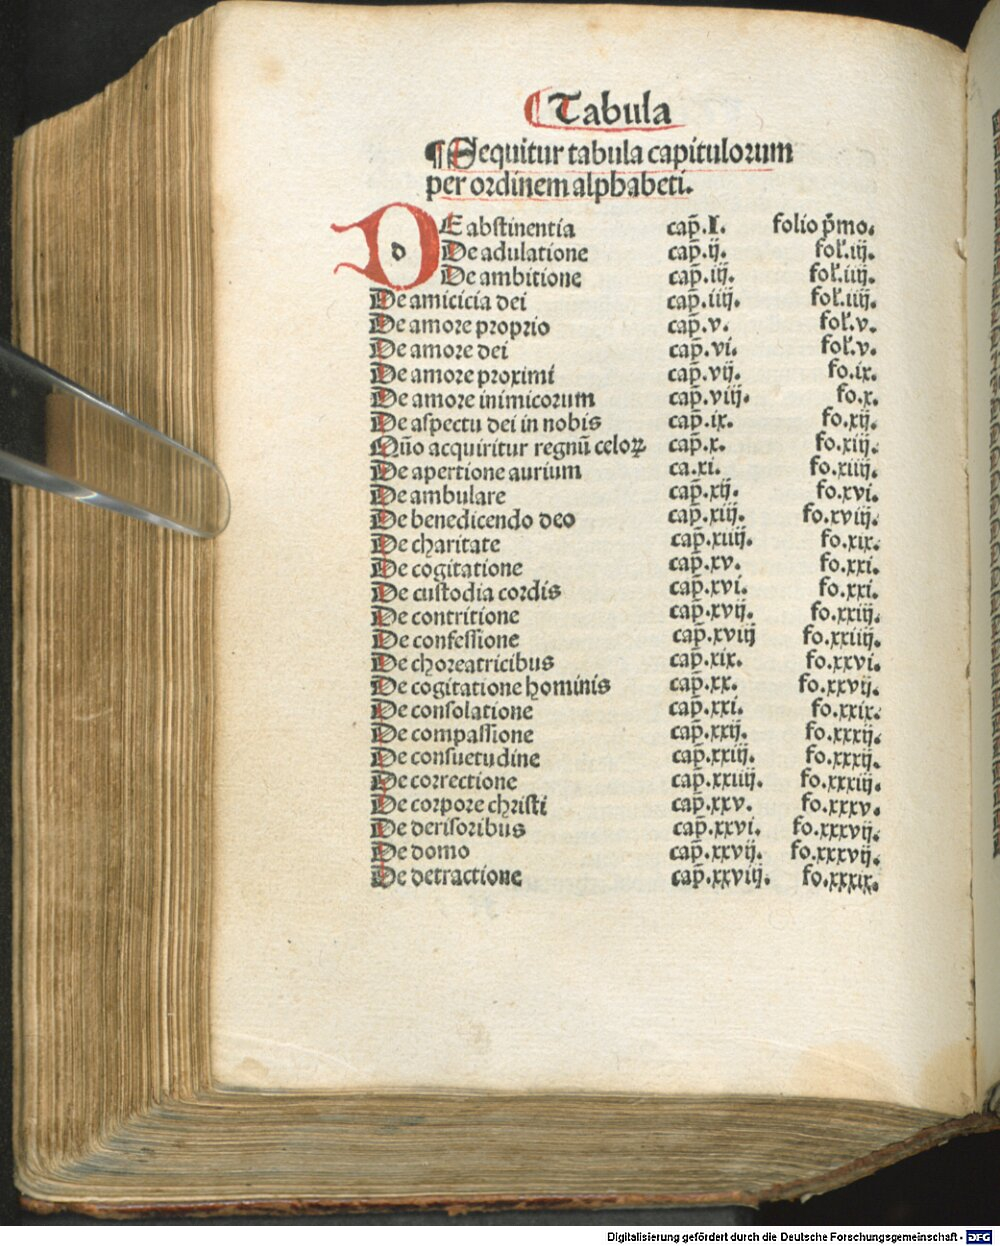 ¶ Tabula
¶ Sequitur tabula capitulorum
per ordinem alphabeti.
DE abstinentia cap̄.I. folio p̄mo.
De adulatione cap̄.ij. fol̓.iij.
De ambitione cap̄.iij. fol̓.iiij.
De amicicia dei cap̄.iiij. fol̓.iiij.
De amore proprio cap̄.v. fol̓.v.
De amore dei cap̄.vi. fol̓.v.
De amore proximi cap̄.vij. fo.ix.
De amore inimicorum cap̄.viij. fo.x.
De aspectu dei in nobis cap̄.ix. fo.xij.
Quō acquiritur regnū celoꝝ cap̄.x. fo.xiij.
De apertione aurium ca.xi. fo.xiiij.
De ambulare cap̄.xij. fo.xvi.
De benedicendo deo cap̄.xiij. fo.xviij.
De charitate cap̄.xiiij. fo.xix.
De cogitatione cap̄.xv. fo.xxi.
De custodia cordis cap̄.xvi. fo.xxi.
De contritione cap̄.xvij. fo.xxiij.
De confessione cap̄.xviij fo.xxiiij.
De choreatricibus cap̄.xix. fo.xxvi.
De cogitatione hominis cap̄.xx. fo.xxvij.
De consolatione cap̄.xxi. fo.xxix.
De compassione cap̄.xxij. fo.xxxij.
De consuetudine cap̄.xxiij. fo.xxxij.
De correctione cap̄.xxiiij. fo.xxxiij.
De corpore christi cap̄.xxv. fo.xxxv.
De derisoribus cap̄.xxvi. fo.xxxvij.
De domo cap̄.xxvij. fo.xxxvij.
De detractione cap̄.xxviij. fo.xxxix.
Digitalisierung gefördert durch die Deutsche Forschungsgemeinschaft - DFG